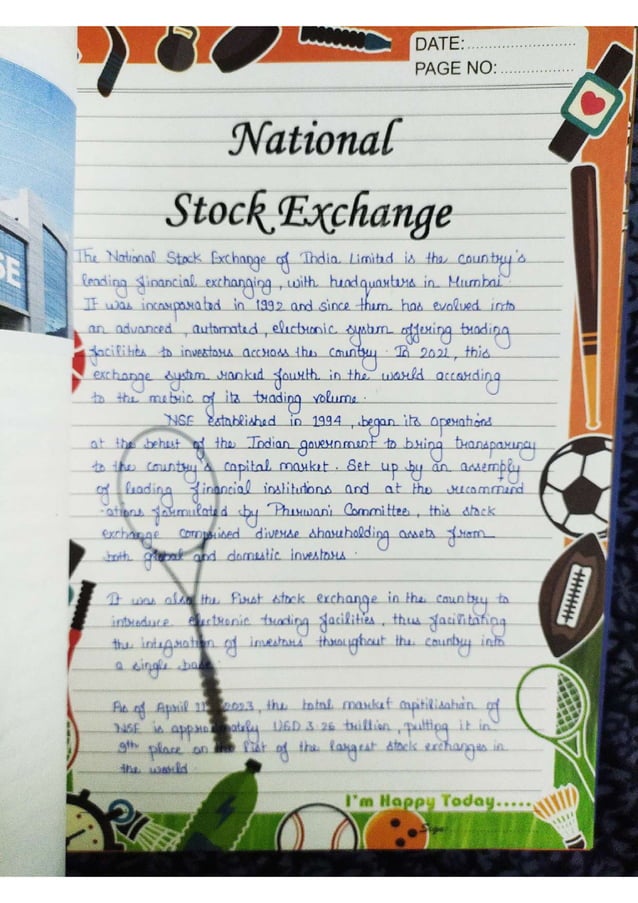 DATE:..........................
PAGE NO:..................
SE
National
Stock Exchange
The National Stock Exchange of India Limited is the country's
leading financial exchanging , with headquarters in Mumbai.
It was incorporated in 1992 and since them has evolved into
an advanced , automated , electronic system offering trading
facilities to investors accross the country . In 2021, this
exchange system ranked fourth in the world according
to the metric of its trading volume .
NSE established in 1994 , began its operations
at the behest of the Indian government to bring transparency
to the country's capital market . Set up by an assemply
of leading financial institutions and at the recommend
-ations formulated by Pherwani Committee , this stock
exchange comprised diverse shareholding assets from
both global and domestic investors .
It was also the First stock exchange in the country to
introduce electronic trading facilities , thus facilitating
the integration of investors throughout the country into
a single base .
As of April 2023, the total market capitilisation of
NSE is approximately USD 3.26 trillion , putting it in
9th place on the list of the largest stock exchanges in
the world .
I'm Happy Today.....
Sign